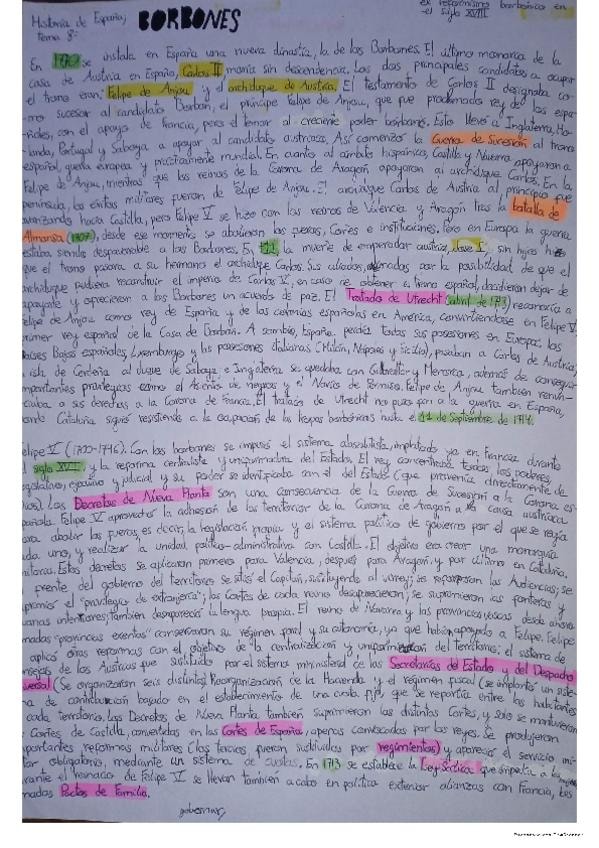 Historia de España, BORBONES
tema 8:
el reformismo borbónico en
el siglo XVIII
En 1700 se instala en España una nueva dinastía, la de los Borbones. El último monarca de la
casa de Austria en España, Carlos II moría sin descendencia. Los dos principales candidatos a ocupar
el trono eran: Felipe de Anjou y el archiduque de Austria. El testamento de Carlos II designaba co-
mo sucesor al candidato Borbón, el príncipe Felipe de Anjou, que fue proclamado rey de los espa-
ñoles, con el apoyo de Francia, pero el temor al creciente poder borbónico. Esto llevó a Inglaterra, Ho-
landa, Portugal y Saboya a apoyar al candidato austriaco. Así comenzó la Guerra de Sucesión al trono
español, guerra europea y prácticamente mundial. En cuanto al ámbito hispánico, Castilla y Navarra apoyaron a
Felipe de Anjou, mientras que los reinos de la Corona de Aragón apoyaron al archiduque Carlos. En la
península, los éxitos militares fueron de Felipe de Anjou. El archiduque Carlos de Austria al principio fue
avanzando hacia Castilla, pero Felipe V se hizo con los reinos de Valencia y Aragón tras la batalla de
Almansa (1707), desde ese momento se abolieron los fueros, Cortes e instituciones. Pero en Europa la guerra
estaba siendo desfavorable a los Borbones. En 1711, la muerte de emperador austria, José I, sin hijos hizo
que el trono pasara a su hermano el archiduque Carlos. Sus aliados, por la posibilidad de que el
archiduque pudiera reconstruir el imperio de Carlos V, en caso de obtener el trono español, decidieron dejar de
apoyarle y ofrecieron a los Borbones un acuerdo de paz. El Tratado de Utrecht (abril de 1713) reconocía a
elipe de Anjou como rey de España y de las colonias españolas en América, convirtiéndose en Felipe V
rimer rey español de la Casa de Borbón. A cambio, España perdía todas sus posesiones en Europa: los
aíses Bajos españoles, Luxemburgo y las posesiones italianas (Milán, Nápoles y Sicilia), pasaban a Carlos de Austria,
isla de Cerdeña al duque de Saboya e Inglaterra se quedaba con Gibraltar y Menorca, además de conseguir
importantes privilegios como el Asiento de negros y el Navío de Permiso. Felipe de Anjou también renun-
ciaba a sus derechos a la Corona de Francia. El tratado de Utrecht no puso fin a la guerra en España,
onde Cataluña siguió resistiendo a la ocupación de las tropas borbónicas hasta el 11 de Septiembre de 1714.
elipe V (1700-1746). Con los borbones se impuso el sistema absolutista, implantado ya en Francia durante
el siglo XVII, y la reforma centralista y uniformadora del Estado. El rey concentraba todos los poderes,
egislativo, ejecutivo y judicial y su poder se identificaba con el del Estado (que provenía directamente de
ios). Los Decretos de Nueva Planta son una consecuencia de la Guerra de Sucesión a la Corona es-
pañola. Felipe V aprovechó la adhesión de los territorios de la Corona de Aragón a la causa austriaca
ara abolir los fueros, es decir, la legislación propia y el sistema político de gobierno por el que se regía
ada uno, y realizar la unidad político-administrativa con Castilla. El objetivo era crear una monarquía
nitaria. Estos decretos se aplicaron primero para Valencia, después para Aragón y por último en Cataluña.
frente del gobierno del territorio se sitúa el Capitán, sustituyendo al virrey; se reforzaron las Audiencias; se
uprimió el "privilegio de extranjería"; las Cortes de cada reino desaparecieron; se suprimieron las fronteras y
uanas interiores; también desapareció la lengua propia. El reino de Navarra y las provincias vascas desde ahora
madas "provincias exentas" conservaron su régimen foral y su autonomía, ya que habían apoyado a Felipe. Felipe
aplicó otras reformas con el objetivo de la centralización y uniformización del territorio: el sistema de
nsejos de los Austrias fue sustituido por el sistema ministerial de las Secretarías del Estado y del Despacho
versal (Se organizaron seis distintas). Reorganización de la Hacienda y el régimen fiscal (se implantó un siste-
a de contribución basado en el establecimiento de una cuota fija, que se repartía entre los habitantes
cada territorio. Los Decretos de Nueva Planta también suprimieron las distintas Cortes, y solo se mantuvieron
Cortes de Castilla, convertidas en las Cortes de España, apenas convocadas por los reyes. Se produjeron
portantes reformas militares (los tercios fueron sustituidos por regimientos) y apareció el servicio mi-
tar obligatorio, mediante un sistema de quintas. En 1713 se establece la Ley Sálica que impedía a las mujeres
gobernar,
rante el reinado de Felipe V se llevan también a cabo en política exterior alianzas con Francia, los
mados Pactos de Familia.